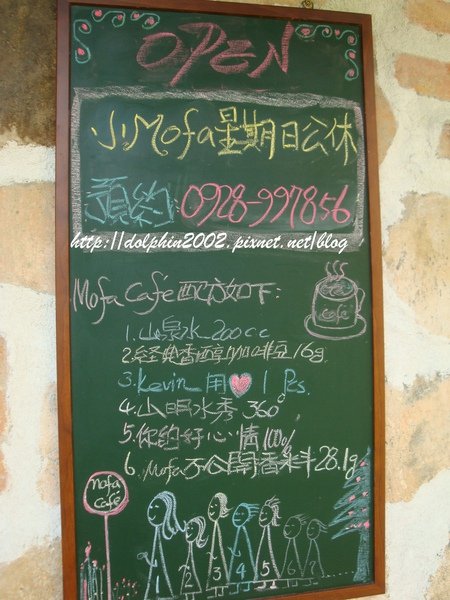 OPEN
小Mofa星期日公休
預約:0928-997856
http://dolphin2002.pixnet.net/blog
Mofa Café配方如下:
café
1.山泉水200cc
2.經典香醇咖啡豆16g
3.Kevin用♥1 Pcs.
4.山明水秀360°
5.你的好心情100%
6.Mofa不公開香料28.1g
mofa
café
1 2 3 4 5 6 7